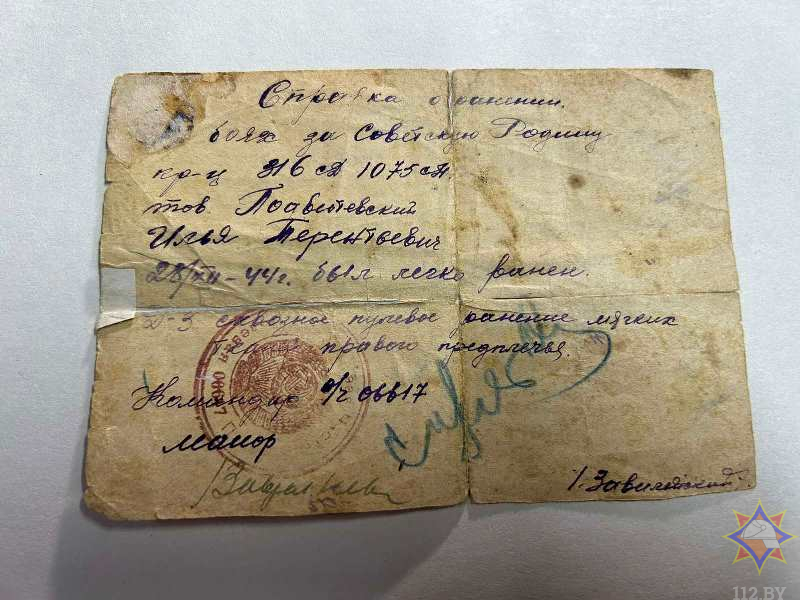 Справка о ранении.
боях за Советскую Родину
кр-ц 316 сд 1075 сп.
тов.
Илья Терентьевич
28/XII-44г. был легко ранен.
Д-з сквозное пулевое ранение мягких
правого предплечья.
Командир в/ч 06617
майор
112.BY